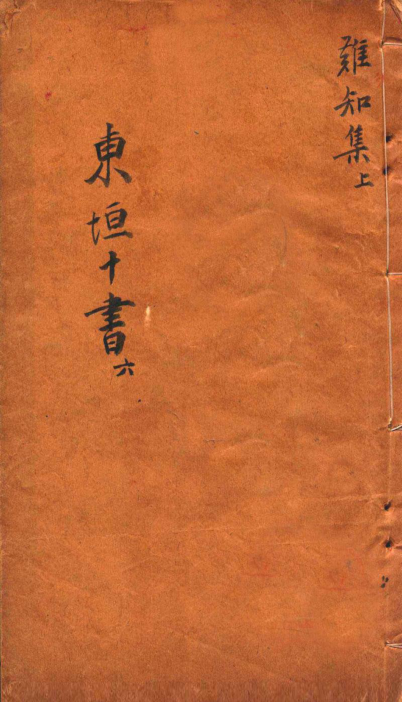 難知集上
東垣十書六